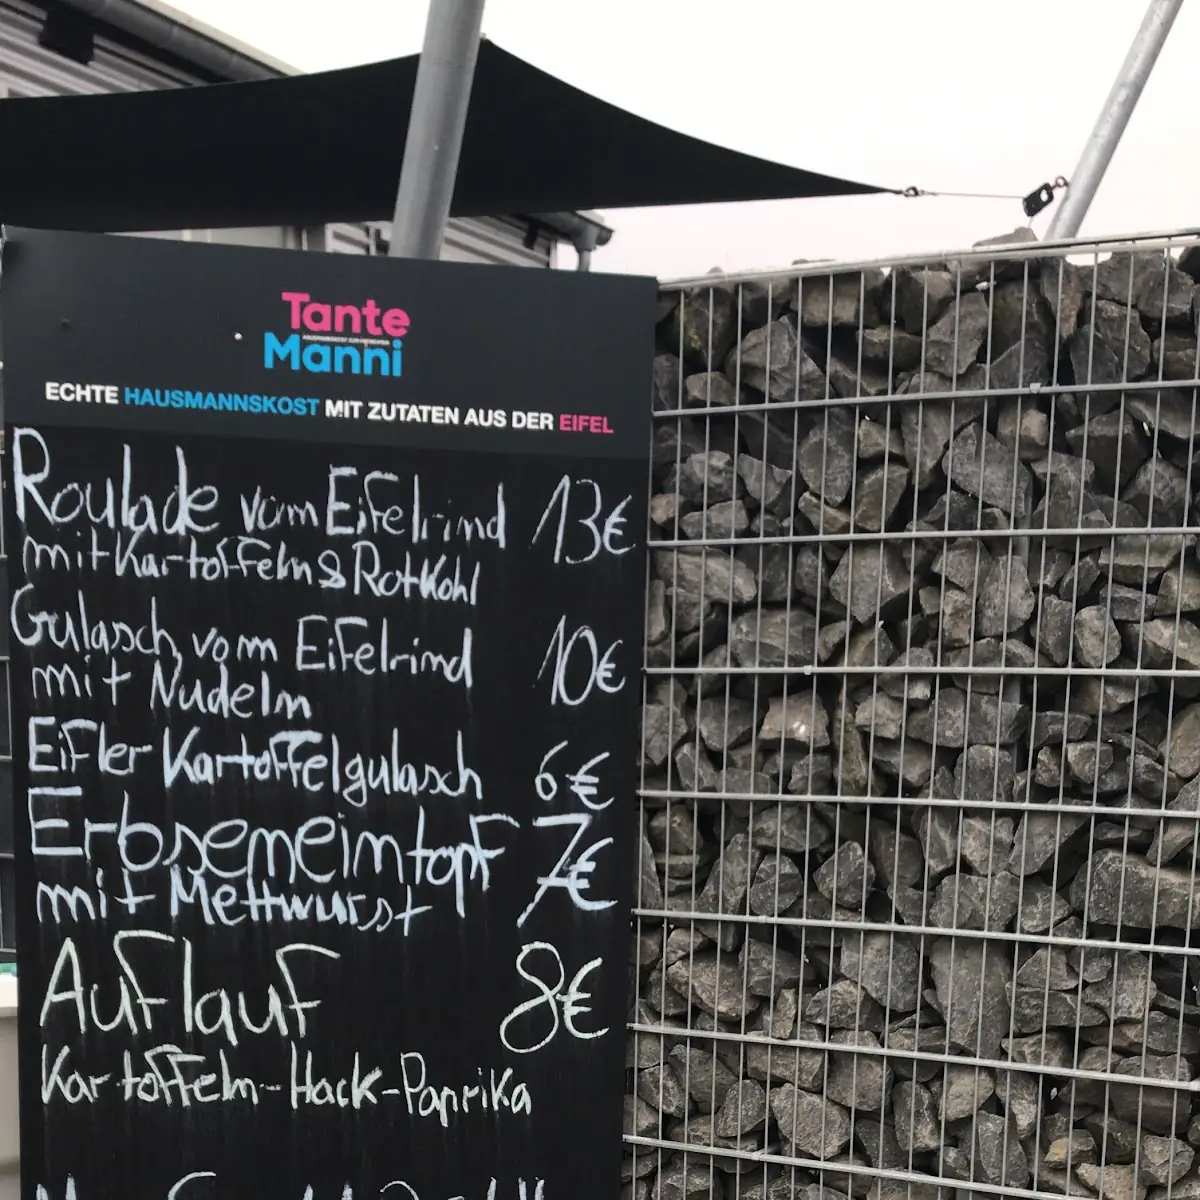 Tante
Manni
ECHTE HAUSMANNSKOST MIT ZUTATEN AUS DER EIFEL
Roulade vom Eifelrind 13€
mit Kartoffeln & Rotkohl
Gulasch vom Eifelrind 10€
mit Nudeln
Eifler Kartoffelgulasch 6€
Erbseneintopf 7€
mit Mettwurst
Auflauf 8€
Kartoffeln-Hack-Paprika